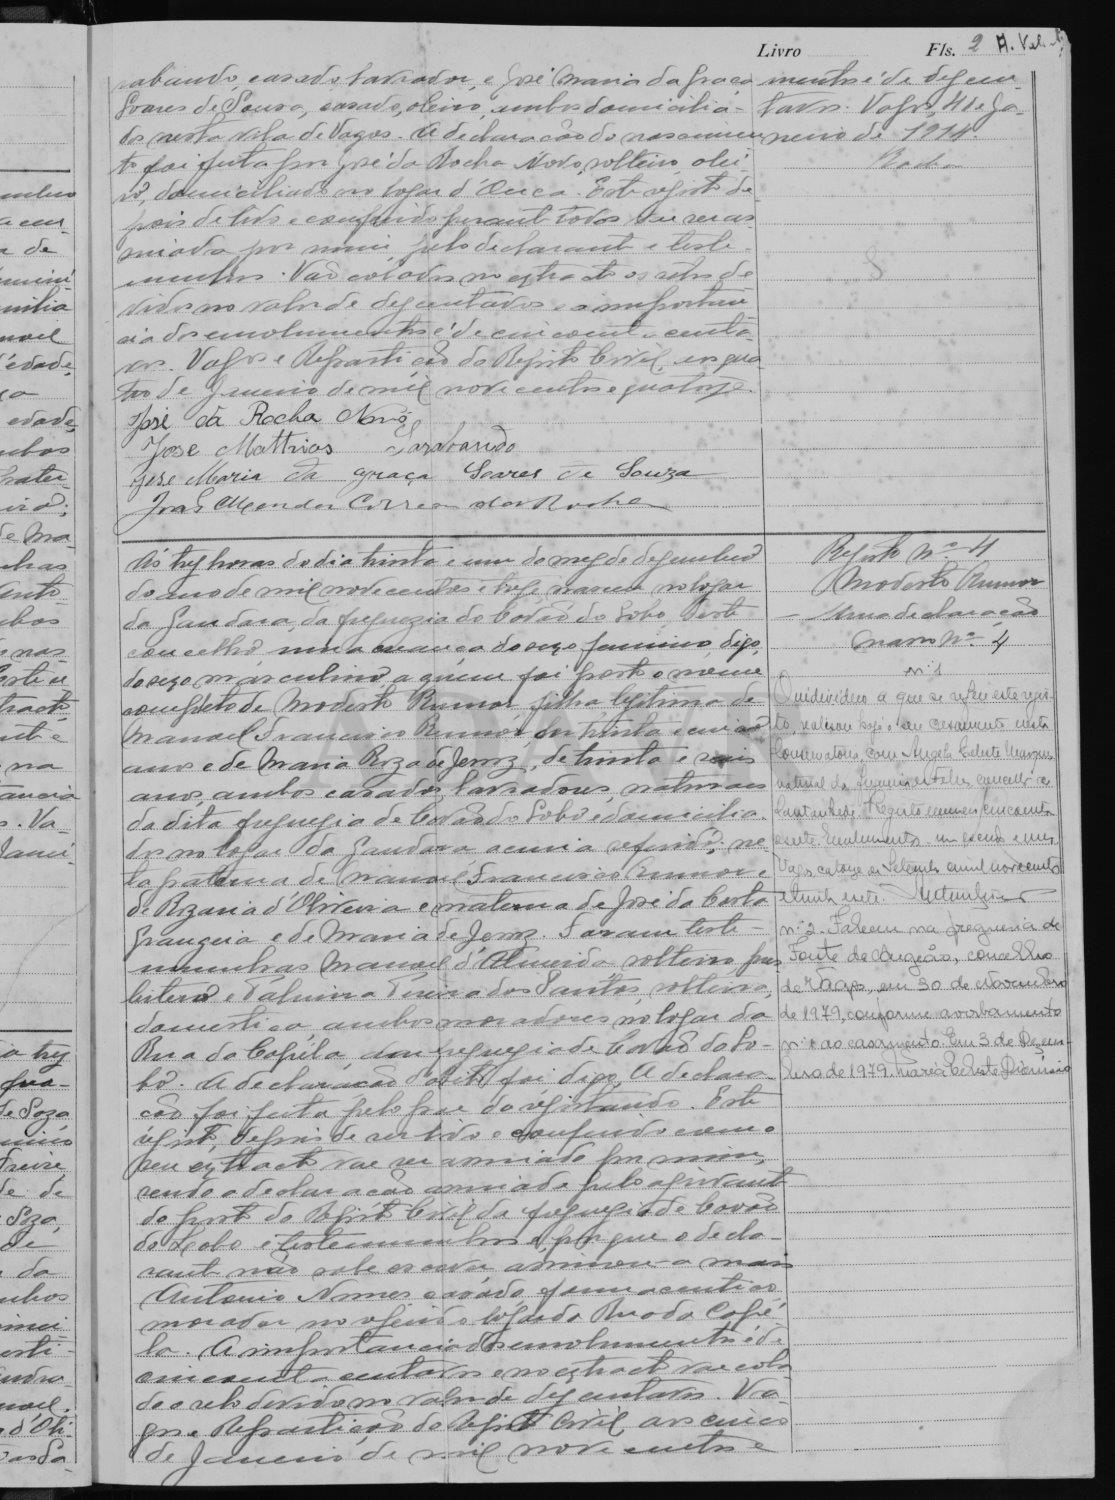 Livro Fls. 2
rabando, casado, lavrador, e José Maria da Graça
Soares de Sousa, casado, oleiro, ambos domicilia-
dos nesta vila de Vagos. A declaração do nascimen
to foi feita por José da Rocha Novo, solteiro, olei
ro, domiciliado no logar d'Ouca. Este registo de
pois de lido e conferido perante todos vai ser as
sinado por mim, pelo declarante e teste-
munhas. Vão colados no extracto os selos de
vidos no valor de dez centavos e a importan
cia dos emolumentos é de cincoenta centa
vos. Vagos e Repartição do Registo Civil, aos qua
tro de Janeiro de mil novecentos e quatorze.
José da Rocha Novo
José Mathias Sarabando
José Maria da Graça Soares de Souza
João Mendes Correia da Rocha
mentos é de dez cen
tavos. Vagos, 4 de Ja-
neiro de 1914.
Rocha
Ás trez horas do dia trinta e um do mez de dezembro
do ano de mil novecentos e treze nasceu no logar
da Gandara, da freguezia de Covão do Lobo, deste
concelho, uma creança do sexo feminino, digo,
do sexo masculino a quem foi posto o nome
completo de Modesto Rumor, filho legitimo de
Manoel Francisco Rumor, de trinta e cinco
anos e de Maria Roza de Jezus, de trinta e seis
anos, ambos casados, lavradores, naturaes
da dita freguezia de Covão do Lobo e domicilia-
dos no logar da Gandara acima referido; ne
to paterno de Manoel Francisco Rumor e
de Rozaria d'Oliveira e materno de José da Costa
Grangeia e de Maria de Jezus. Foram teste-
munhas Manoel d'Almeida, solteiro, pres
bitero e Palmira Pereira dos Santos, solteira,
domestica, ambos moradores no logar da
Rua da Capéla, da freguezia de Covão do Lo-
bo. A declaração deste foi digo, A declara-
ção foi feita pelo pae do registando. Este
registo, depois de ser lido e conferido com o
seu extracto vae ser assinado por mim,
sendo a declaração assinada pelo ajudante
do posto do Registo Civil da freguezia de Covão
do Lobo e testemunhas e, porque o decla-
rante não sabe escrever, assinou-a mais
Antonio Nunes casado farmaceutico
morador no referido logar da Rua da Capé
la. A importancia dos emolumentos é de
cincoenta centavos e no extracto vae cola
do o selo devido no valor de dez centavos. Va-
gos e Repartição do Registo Civil, aos cinco
de Janeiro de mil novecentos e
Registo Nº 4
Modesto Rumor
Uma declaração
Maço Nº 4
nº 1
O individuo a que se refere este regis-
to, realisou hoje o seu casamento nesta
Conservatoria, com Angela Celeste Marques
natural da freguezia concelho de
Cantanhede. Registo numero cincoenta
e sete. Emolumentos um escudo e
Vagos catorze de Setembro de mil novecentos
e trinta e sete.
nº 2. Faleceu na freguesia de
Fonte de Angeão, concelho
de Vagos, em 30 de Novembro
de 1979, conforme averbamento
nº 1 ao casamento. Em 3 de Dezem-
bro de 1979. Maria Celeste Dionisio